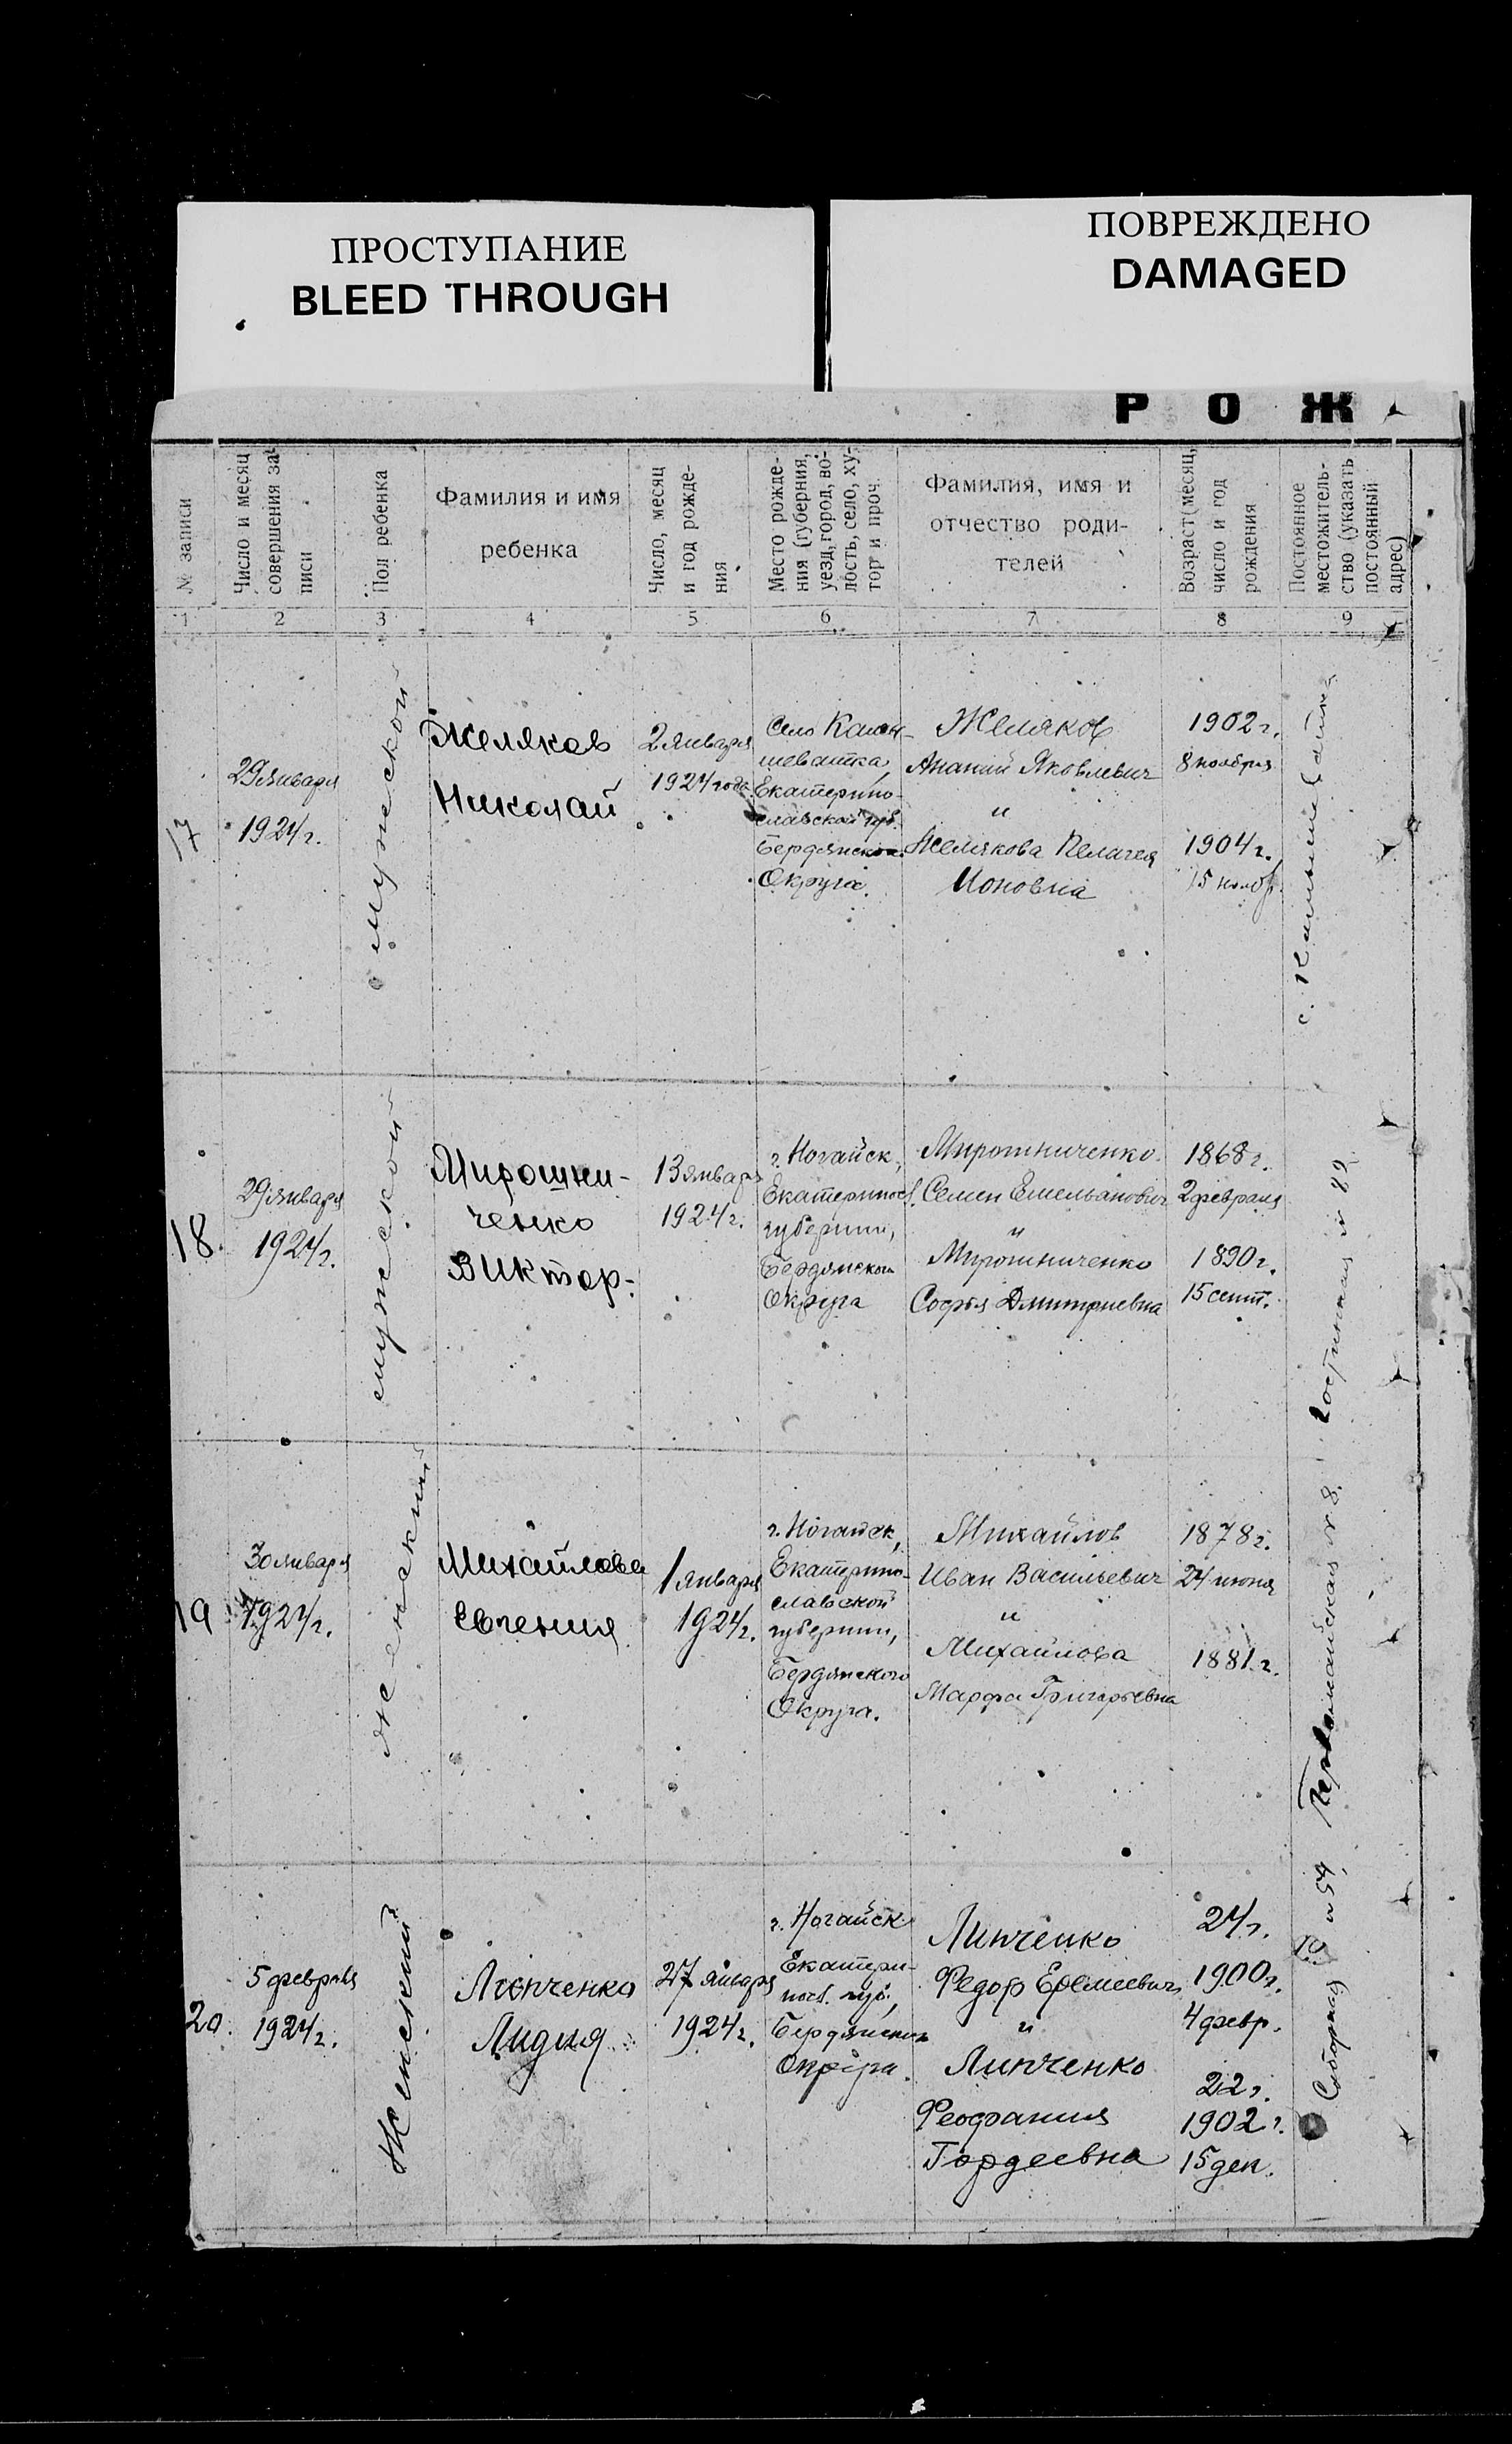 ПРОСТУПАНИЕ
BLEED THROUGH
ПОВРЕЖДЕНО
DAMAGED
Р О Ж
№ записи
Число и месяц
совершения за-
писи
Пол ребенка
Фамилия и имя
ребенка
Число, месяц
и год рожде-
ния
Место рожде-
ния (губерния,
уезд, город, во-
лость, село, ху-
тор и проч.
Фамилия, имя и
отчество роди-
телей
Возраст (месяц,
число и год
рождения
Постоянное
местожитель-
ство (указать
постоянный
адрес)
1
2
3
4
5
6
7
8
9
17
29 января
1924 г.
мужской
Желяков
Николай
2 января
1924 года
Село
шеватка,
Екатерино-
славской губ.
Бердянской
Округа.
Желяков
Ананий Яковлевич
и
Желякова Пелагея
Ионовна
1902 г.
8 ноября
1904 г.
15 нояб.
с.
18.
29 января
1924 г.
мужской
Мирошни-
ченко
Виктор.
13 января
1924 г.
г. Ногайск,
Екатериносл.
губернии,
Бердянской
Округа
Мирошниченко
Семен Емельянович
и
Мирошниченко
Софья Дмитриевна
1868 г.
2 февраля
1890 г.
15 сент.
19
30 января
1924 г.
женский
Михайлова
Евгения
1 января
1924 г.
г. Ногайск,
Екатерино-
славской
губернии,
Бердянского
Округа.
Михайлов
Иван Васильевич
и
Михайлова
Марфа Григорьевна
1878 г.
24 июня
1881 г.
Первомайская № 8.
20.
5 февраля
1924 г.
Женский
Линченко
Лидия
27 января
1924 г.
г. Ногайск
Екатери-
носл. губ.,
Бердянского
Округа.
Линченко
Федор Еремеевич
и
Линченко
Феофания
Гордеевна
24 г.
1900 г.
4 февр.
22 г.
1902 г.
15 дек.
Соборная